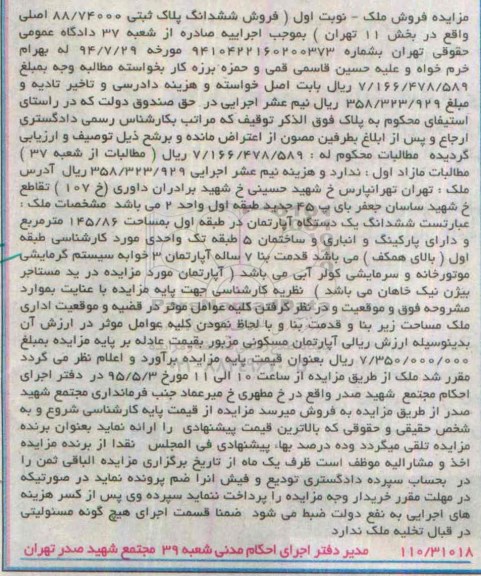 مزایده فروش ملک - نوبت اول ( فروش ششدانگ پلاک ثبتی ۸۸/۷۴۰۰۰ اصلی
واقع در بخش ۱۱ تهران ) بموجب اجراییه صادره از شعبه ۳۷ دادگاه عمومی
حقوقی تهران بشماره ۹۴۱۰۴۲۲۱۶۰۲۰۰۳۷۳ مورخه ۹۴/۷/۲۹ له بهرام
خرم خواه و علیه حسین قاسمی قمی و حمزه برزه کار بخواسته مطالبه وجه بمبلغ
۷/۱۶۶/۴۷۸/۵۸۹ ریال بابت اصل خواسته و هزینه دادرسی و تاخیر تادیه و
مبلغ ۳۵۸/۳۲۳/۹۲۹ ریال نیم عشر اجرایی در حق صندوق دولت که در راستای
استیفای محکوم به پلاک فوق الذکر توقیف که مراتب بکارشناس رسمی دادگستری
ارجاع و پس از ابلاغ بطرفین مصون از اعتراض مانده و برشح ذیل توصیف و ارزیابی
گردیده مطالبات محکوم له : ۷/۱۶۶/۴۷۸/۵۸۹ ریال ( مطالبات از شعبه ۳۷ )
مطالبات مازاد اول : ندارد و هزینه نیم عشر اجرایی ۳۵۸/۳۲۳/۹۲۹ ریال آدرس
ملک : تهران تهرانپارس خ شهید حسینی خ شهید برادران داوری (خ ۱۰۷ ) تقاطع
خ شهید ساسان جعفر بای پ ۴۵ جدید طبقه اول واحد ۲ می باشد مشخصات ملک :
عبارتست ششدانگ یک دستگاه آپارتمان در طبقه اول بمساحت ۱۴۵/۸۶ مترمربع
و دارای پارکینگ و انباری و ساختمان ۵ طبقه تک واحدی مورد کارشناسی طبقه
اول ( بالای همکف ) می باشد قدمت بنا ۷ ساله آپارتمان ۳ خوابه سیستم گرمایشی
موتورخانه و سرمایشی کولر آبی می باشد ( آپارتمان مورد مزایده در ید مستاجر
بیژن نیک خاهان می باشد ) نظریه کارشناسی جهت پایه مزایده با عنایت بموارد
مشروحه فوق و موقعیت و در نظر گرفتن کلیه عوامل موثر در قضیه و موقعیت اداری
ملک مساحت زیر بنا و قدمت بنا و با لحاظ نمودن کلیه عوامل موثر در ارزش آن
بدینوسیله ارزش ریالی آپارتمان مسکونی مزبور بقیمت عادله بر پایه مزایده بمبلغ
۷/۳۵۰/۰۰۰/۰۰۰ ریال بعنوان قیمت پایه مزایده برآورد و اعلام نظر می گردد
مقرر شد ملک از طریق مزایده از ساعت ۱۰ الی ۱۱ مورخ ۹۵/۵/۳ در دفتر اجرای
احکام مجتمع شهید صدر واقع در خ مطهری خ میرعماد جنب فرمانداری مجتمع شهید
صدر از طریق مزایده به فروش میرسد مزایده از قیمت پایه کارشناسی شروع و به
شخص حقیقی و حقوقی که بالاترین قیمت پیشنهادی را ارائه نماید بعنوان برنده
مزایده تلقی میگردد وده درصد بهاء پیشنهادی فی المجلس نقدا از برنده مزایده
اخذ و مشارالیه موظف است ظرف یک ماه از تاریخ برگزاری مزایده الباقی ثمن را
در بحساب سپرده دادگستری تودیع و فیش آنرا ضم پرونده نماید در صورتیکه
در مهلت مقرر خریدار وجه مزایده را پرداخت ننماید سپرده وی پس از کسر هزینه
های اجرایی به نفع دولت ضبط می شود ضمنا قسمت اجرای هیچ گونه مسئولیتی
در قبال تخلیه ملک ندارد
۱۱۰/۳۱۰۱۸ مدیر دفتر اجرای احکام مدنی شعبه ۳۹ مجتمع شهید صدر تهران